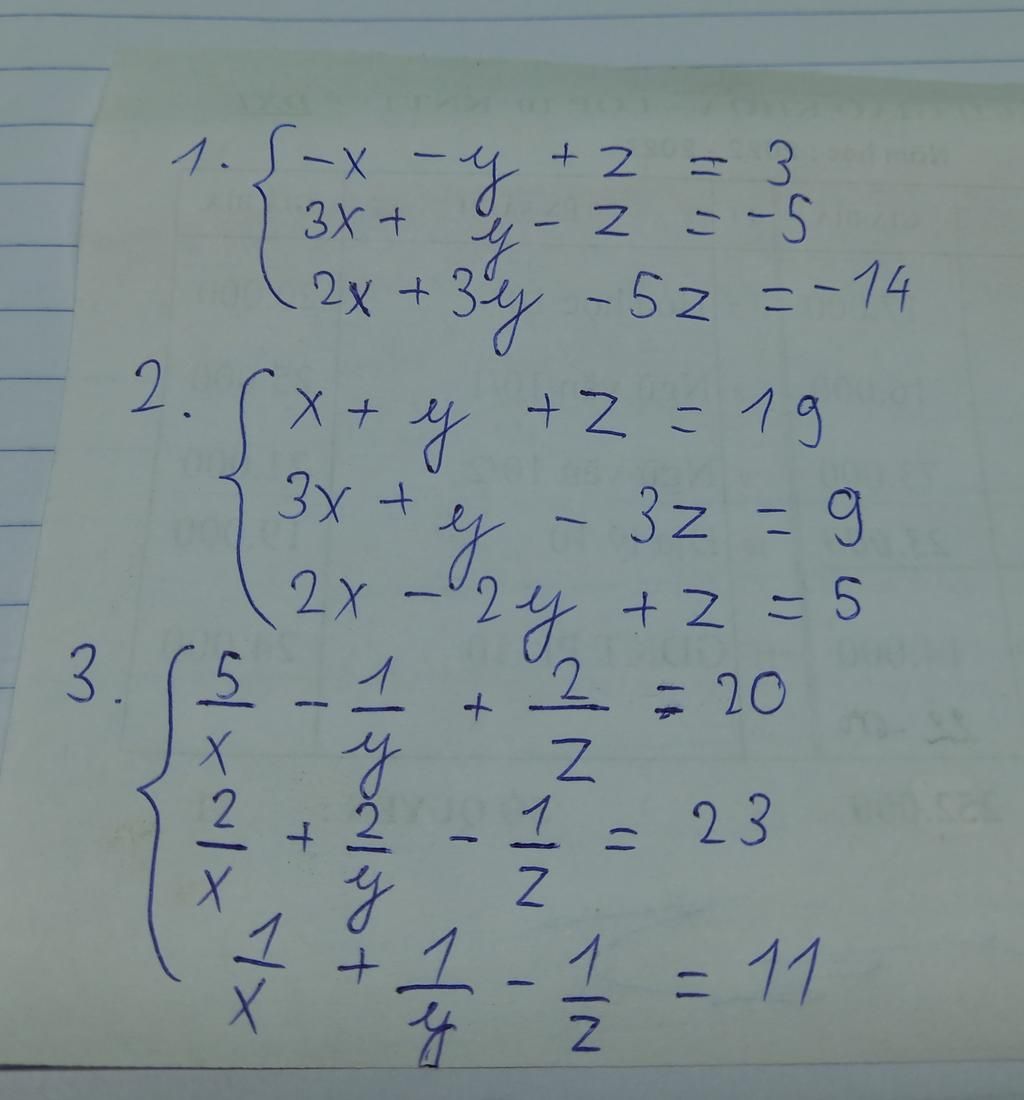 1. { -x - y + z = 3
3x + y - z = -5
2x + 3y - 5z = -14
2. { x + y + z = 19
3x + y - 3z = 9
2x - 2y + z = 5
3. { 5/x - 1/y + 2/z = 20
2/x + 2/y - 1/z = 23
1/x + 1/y - 1/z = 11